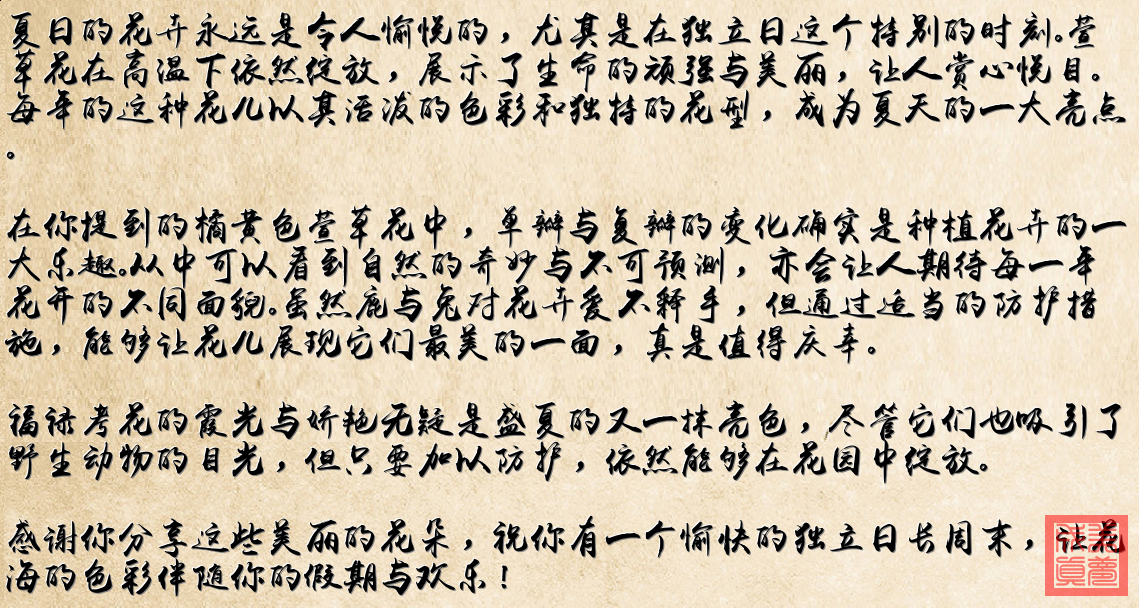 夏日的花卉永远是令人愉悦的，尤其是在独立日这个特别的时刻。萱
草花在高温下依然绽放，展示了生命的顽强与美丽，让人赏心悦目。
每年的这种花儿以其活泼的色彩和独特的花型，成为夏天的一大亮点
。
在你提到的橘黄色萱草花中，单瓣与复瓣的变化确实是种植花卉的一
大乐趣。从中可以看到自然的奇妙与不可预测，亦会让人期待每一年
花开的不同面貌。虽然鹿与兔对花卉爱不释手，但通过适当的防护措
施，能够让花儿展现它们最美的一面，真是值得庆幸。
福禄考花的霞光与娇艳无疑是盛夏的又一抹亮色，尽管它们也吸引了
野生动物的目光，但只要加以防护，依然能够在花园中绽放。
感谢你分享这些美丽的花朵，祝你有一个愉快的独立日长周末，让花
海的色彩伴随你的假期与欢乐！